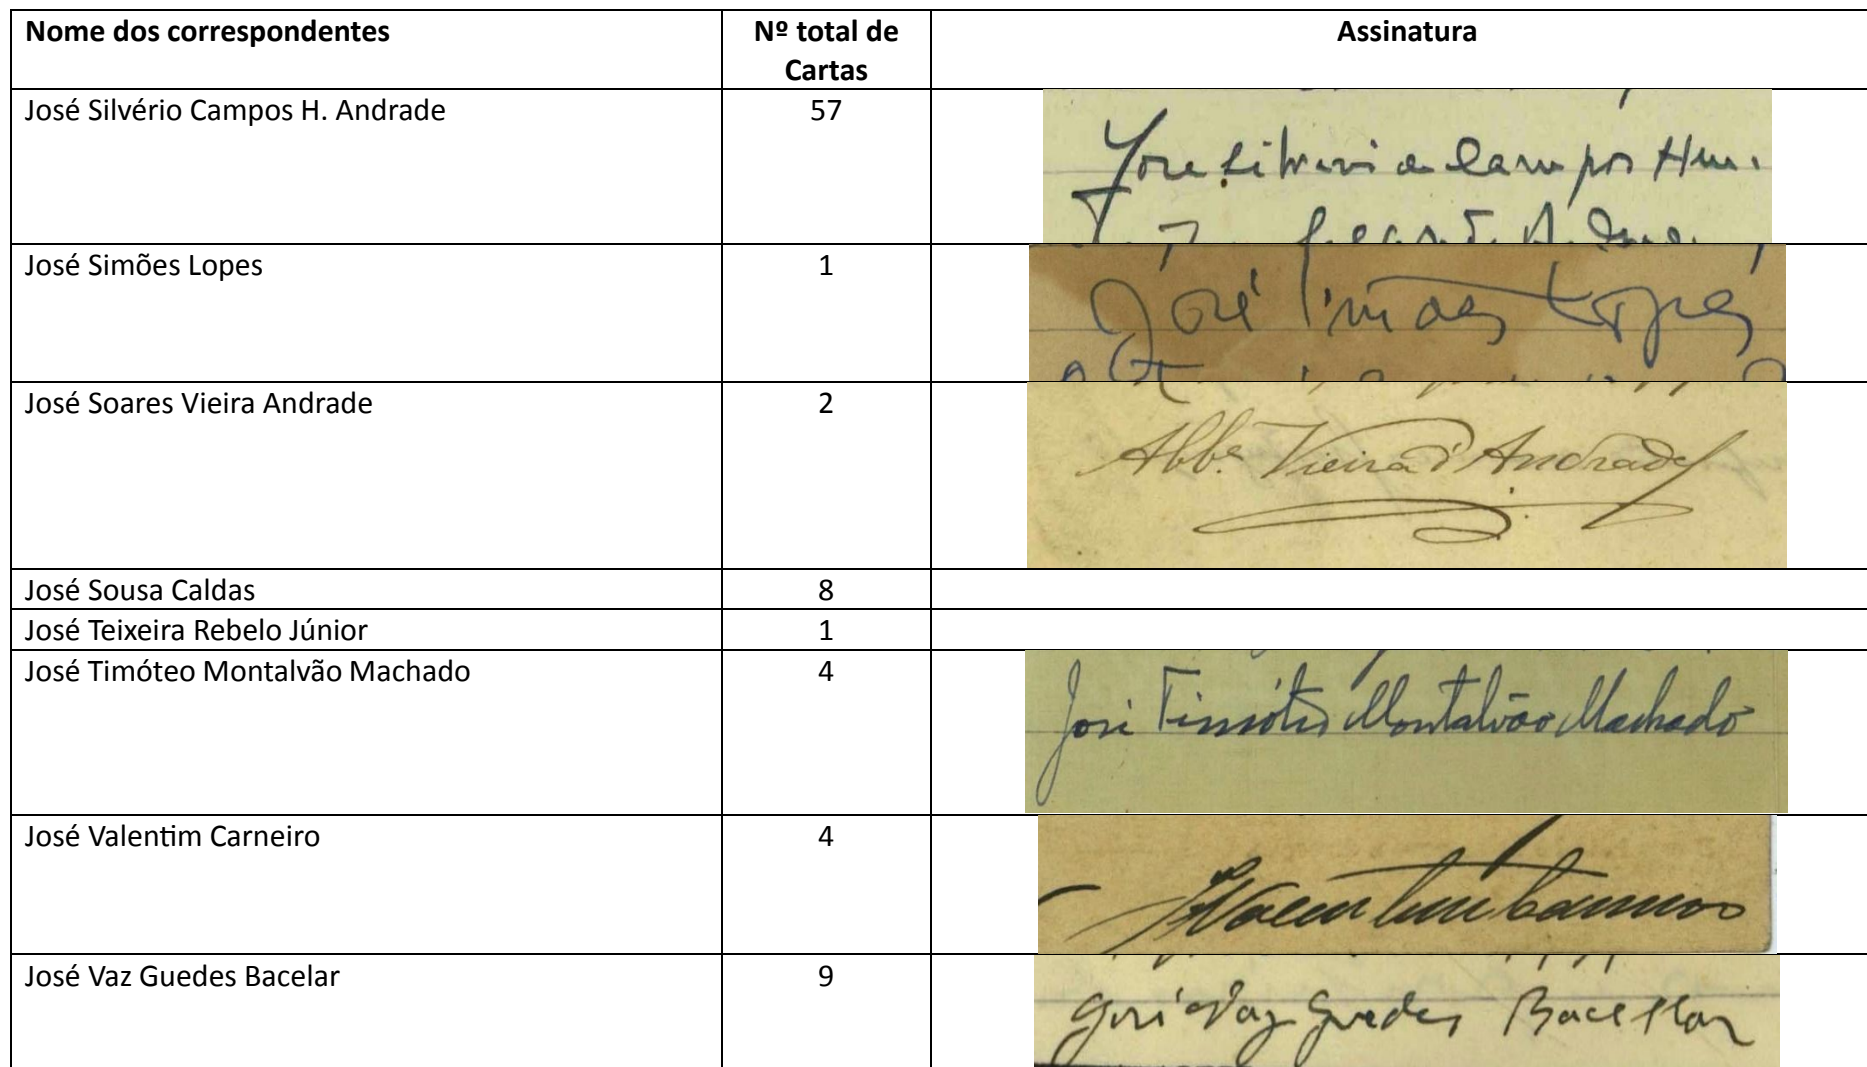 Nome dos correspondentes
Nº total de
Cartas
Assinatura
José Silvério Campos H. Andrade
57
José Silverio Campos Hen.
José Simões Lopes
1
José Simões Lopes
José Soares Vieira Andrade
2
Abbe. Vieira d'Andrade
José Sousa Caldas
8
José Teixeira Rebelo Júnior
1
José Timóteo Montalvão Machado
4
José Timóteo Montalvão Machado
José Valentim Carneiro
4
JValentim Carneiro
José Vaz Guedes Bacelar
9
José Vaz Guedes Bacellar